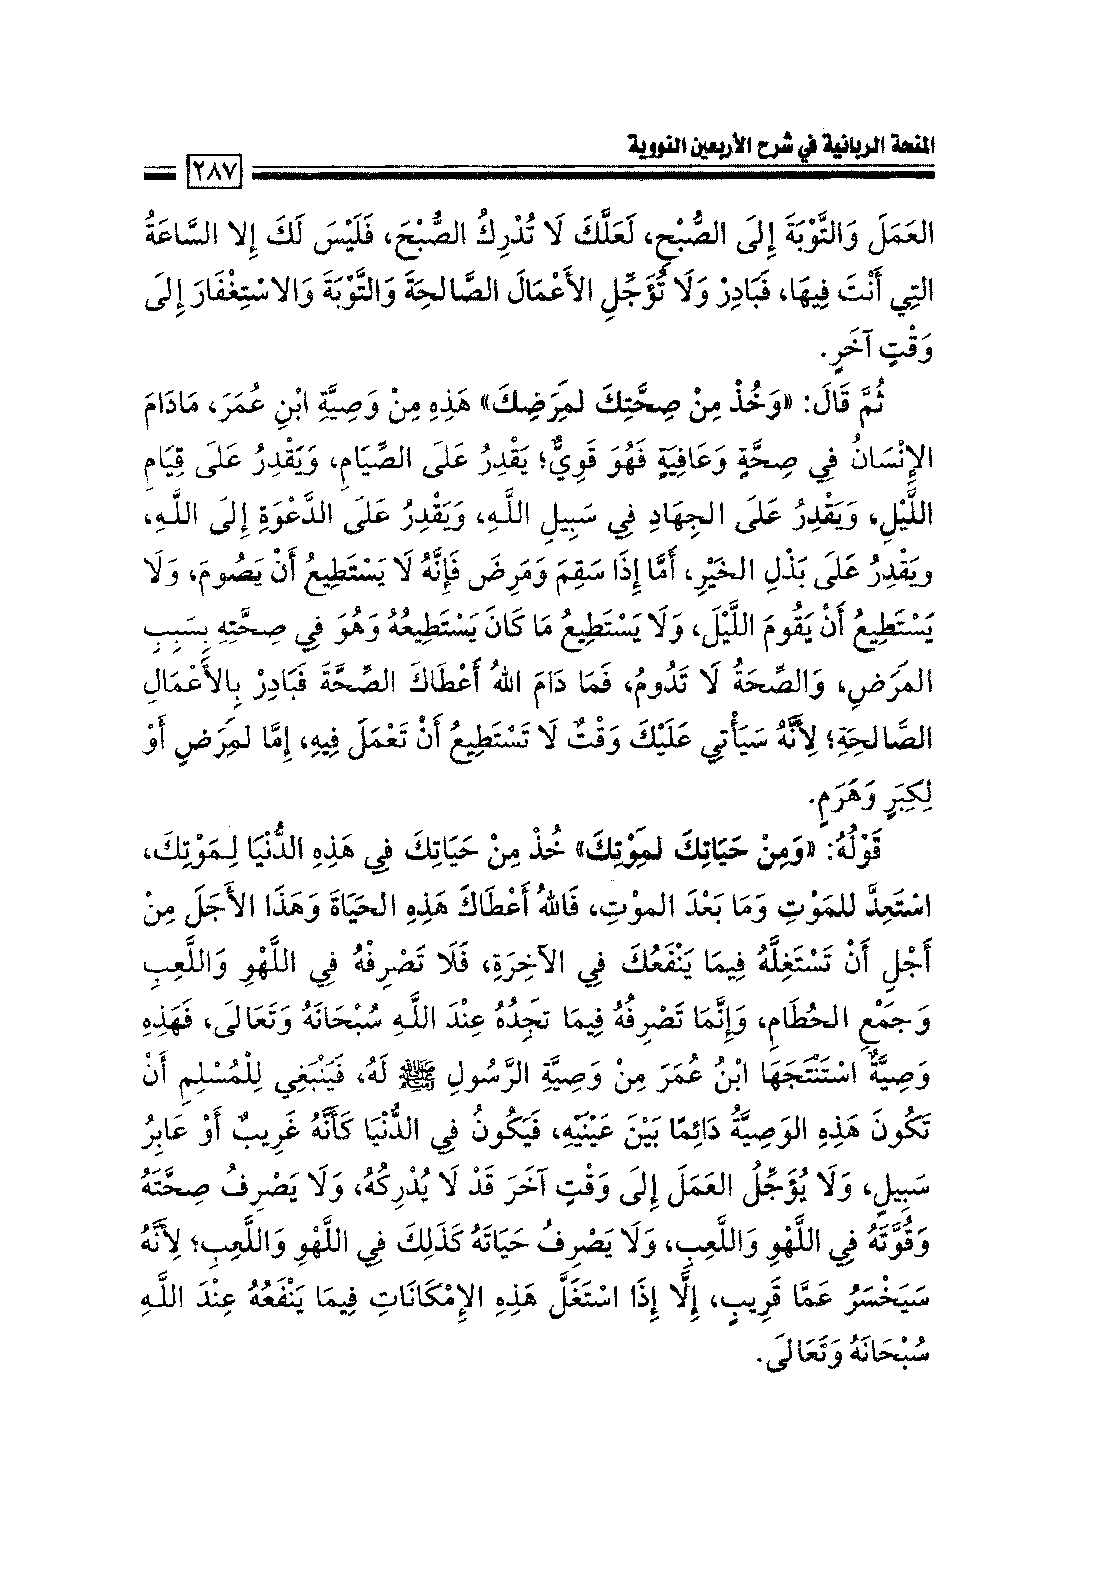 المنحة الربانية في شرح الأربعين النووية
٢٨٧
العَمَلَ وَالتَّوْبَةَ إِلَى الصُّبْحِ، لَعَلَّكَ لَا تُدْرِكُ الصُّبْحَ، فَلَيْسَ لَكَ إِلا السَّاعَةُ
التِي أَنْتَ فِيهَا، فَبَادِرْ وَلَا تُؤَجِّلِ الأَعْمَالَ الصَّالِحَةَ وَالتَّوْبَةَ وَالاسْتِغْفَارَ إِلَى
وَقْتٍ آخَرٍ.
ثُمَّ قَالَ: «وَخُذْ مِنْ صِحَّتِكَ لمِرَضِكَ» هَذِهِ مِنْ وَصِيَّةِ ابْنِ عُمَرَ، مَادَامَ
الإِنْسَانُ فِي صِحَّةٍ وَعَافِيَةٍ فَهُوَ قَوِيٌّ؛ يَقْدِرُ عَلَى الصِّيَامِ، وَيَقْدِرُ عَلَى قِيَامِ
اللَّيْلِ، وَيَقْدِرُ عَلَى الجِهَادِ فِي سَبِيلِ اللَّهِ، وَيَقْدِرُ عَلَى الدَّعْوَةِ إِلَى اللَّهِ،
ويَقْدِرُ عَلَى بَذْلِ الخَيْرِ، أَمَّا إِذَا سَقِمَ وَمَرِضَ فَإِنَّهُ لَا يَسْتَطِيعُ أَنْ يَصُومَ، وَلَا
يَسْتَطِيعُ أَنْ يَقُومَ اللَّيْلَ، وَلَا يَسْتَطِيعُ مَا كَانَ يَسْتَطِيعُهُ وَهُوَ فِي صِحَّتِهِ بِسَبِبِ
المَرَضِ، وَالصِّحَةُ لَا تَدُومُ، فَمَا دَامَ اللهُ أَعْطَاكَ الصِّحَّةَ فَبَادِرْ بِالأَعْمَالِ
الصَّالحِةِ؛ لِأَنَّهُ سَيَأْتِي عَلَيْكَ وَقْتٌ لَا تَسْتَطِيعُ أَنْ تَعْمَلَ فِيهِ، إِمَّا لمِرَضٍ أَوْ
لِكِبَرٍ وَهَرَمٍ.
قَوْلُهُ: «وَمِنْ حَيَاتِكَ لمِوْتِكَ» خُذْ مِنْ حَيَاتِكَ فِي هَذِهِ الدُّنْيَا لِمَوْتِكَ،
اسْتَعِدَّ للمَوْتِ وَمَا بَعْدَ الموْتِ، فَاللهُ أَعْطَاكَ هَذِهِ الحَيَاةَ وَهَذَا الأَجَلَ مِنْ
أَجْلِ أَنْ تَسْتَغِلَّهُ فِيمَا يَنْفَعُكَ فِي الآخِرَةِ، فَلَا تَصْرِفْهُ فِي اللَّهْوِ وَاللَّعِبِ
وَجَمْعِ الحُطَامِ، وَإِنَّمَا تَصْرِفُهُ فِيمَا تجَدُهُ عِنْدَ اللَّهِ سُبْحَانَهُ وَتَعَالَى، فَهَذِهِ
وَصِيَّةٌ اسْتَنْتَجَهَا ابْنُ عُمَرَ مِنْ وَصِيَّةِ الرَّسُولِ ﷺ لَهُ، فَيَنْبَغِي لِلْمُسْلِمِ أَنْ
تَكُونَ هَذِهِ الوَصِيَّةُ دَائِمًا بَيْنَ عَيْنَيْهِ، فَيَكُونُ فِي الدُّنْيَا كَأَنَّهُ غَرِيبٌ أَوْ عَابِرُ
سَبِيلٍ، وَلَا يُؤَجِّلُ العَمَلَ إِلَى وَقْتٍ آخَرَ قَدْ لَا يُدْرِكُهُ، وَلَا يَصْرِفُ صِحَّتَهُ
وَقُوَّتَهُ فِي اللَّهْوِ وَاللَّعِبِ، وَلَا يَصْرِفُ حَيَاتَهُ كَذَلِكَ فِي اللَّهْوِ وَاللَّعِبِ؛ لِأَنَّهُ
سَيَخْسَرُ عَمَّا قَرِيبٍ، إِلَّا إِذَا اسْتَغَلَّ هَذِهِ الإِمْكَانَاتِ فِيمَا يَنْفَعُهُ عِنْدَ اللَّهِ
سُبْحَانَهُ وَتَعَالَى.